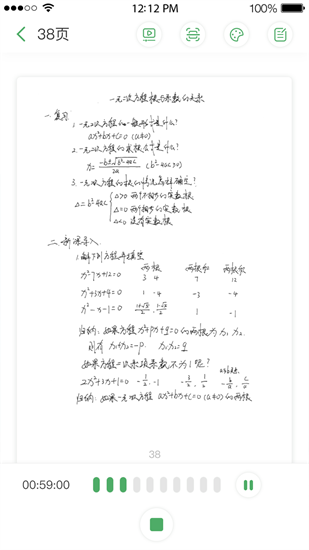 12:12 PM 100%
38页
一元二次方程根与系数的关系
一、复习:
1. 一元二次方程的一般形式是什么?
ax²+bx+c=0 (a≠0)
2. 一元二次方程的求根公式是什么?
x= -b±√b²-4ac / 2a (b²-4ac≥0)
3. 一元二次方程的根的情况怎样确定?
Δ=b²-4ac { Δ>0 两个不相等的实数根
Δ=0 两个相等的实数根
Δ<0 没有实数根
二、新课导入
1. 解下列方程并填空
两根 两根和 两根积
x²-7x+12=0 3 4 7 12
x²+3x-4=0 1 -4 -3 -4
x²-x-1=0 1+√5/2, 1-√5/2 1 -1
归纳: 如果方程x²+px+q=0的两根为x₁ x₂
则有 x₁+x₂=-p, x₁x₂=q
如果方程二次项系数不为1呢?
2x²+3x+1=0 -1/2, -1 -3/2, 1/2 -b/a, c/a
归纳: 如果一元二次方程 ax²+bx+c=0 (a≠0)的两根
38
00:59:00